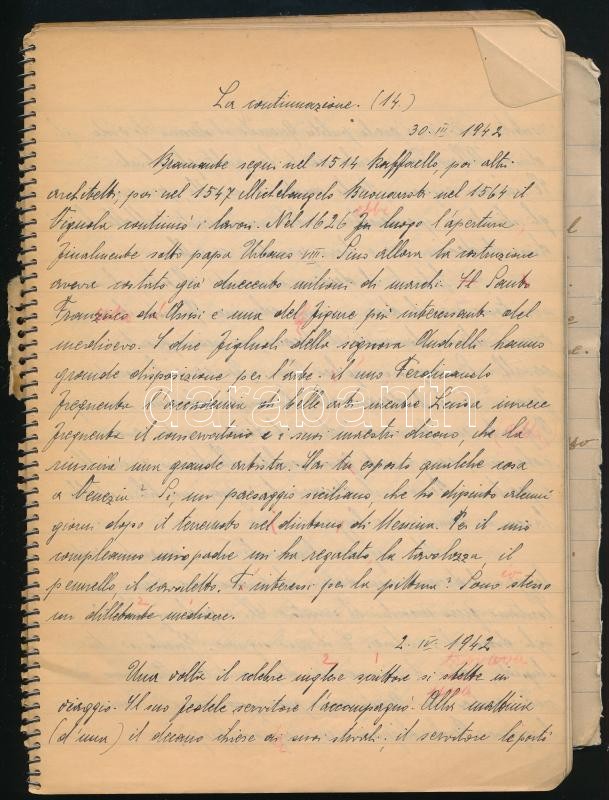 La continuazione. (14.)
30. III. 1942
Bramante seguì nel 1514 Raffaello, poi altri
architetti, poi nel 1547 Michelangelo Buonarroti nel 1564 il
Vignola continuò i lavori. Nel 1626 ebbe luogo l'apertura
finalmente sotto papa Urbano VIII. Fino allora la costruzione
aveva costato già duecento milioni di marchi. Il Santo
Francesco da Assisi è una del figure più interessanti del
medioevo. I due figliuoli della signora hanno
grande disposizione per l'arte. il uno Ferdinando
frequenta l'accademia di belle arti mentre Luisa invece
frequenta il conservatorio e i suoi maestri dicono, che la
riuscirà una grande artista. Hai tu esposto qualche cosa
a Venezia? Sì, un paesaggio siciliano, che ho dipinto alcuni
giorni dopo il terremoto nel dintorno di Messina. Per il mio
compleanno mio padre mi ha regalato la tavolozza il
pennello, il cavaletto. Ti interessi per la pittura? Sono stesso
un dillettante mediocre.
2. IV. 1942
Una volta il celebre inglese scrittore si stette in
viaggio. Il suo fedele servitore l'accompagnò. Alla mattina
(d'una) il chiese suoi stivali, il servitore le portò
darabanth